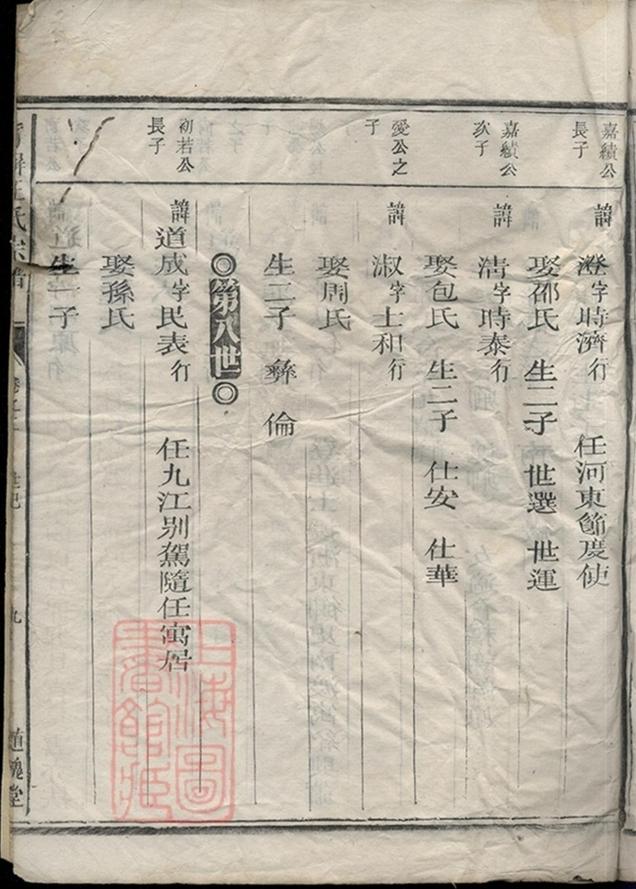 嘉績公長子
諱澄字時濟行 任河東節度使
娶邵氏 生二子 世選 世運
嘉績公次子
諱清字時泰行
娶包氏 生二子 仕安 仕華
愛公之子
諱淑字士和行
娶周氏
生二子 彝 倫
◎第八世◎
初若公長子
諱道成字民表行 任九江别駕隨任寓居
娶孫氏
生一子
氏宗譜
九
道槐堂
上海圖書館藏